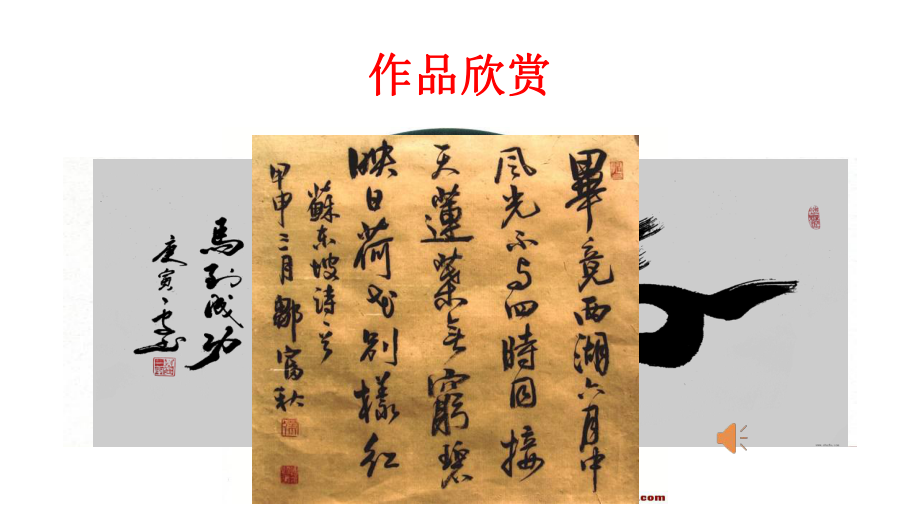 作品欣赏
畢竟西湖六月中
风光不与四時同接
天蓮葉无窮碧
映日荷花别樣红
蘇东坡詩
甲申三月鄒富秋
馬到成功
庚寅
.com